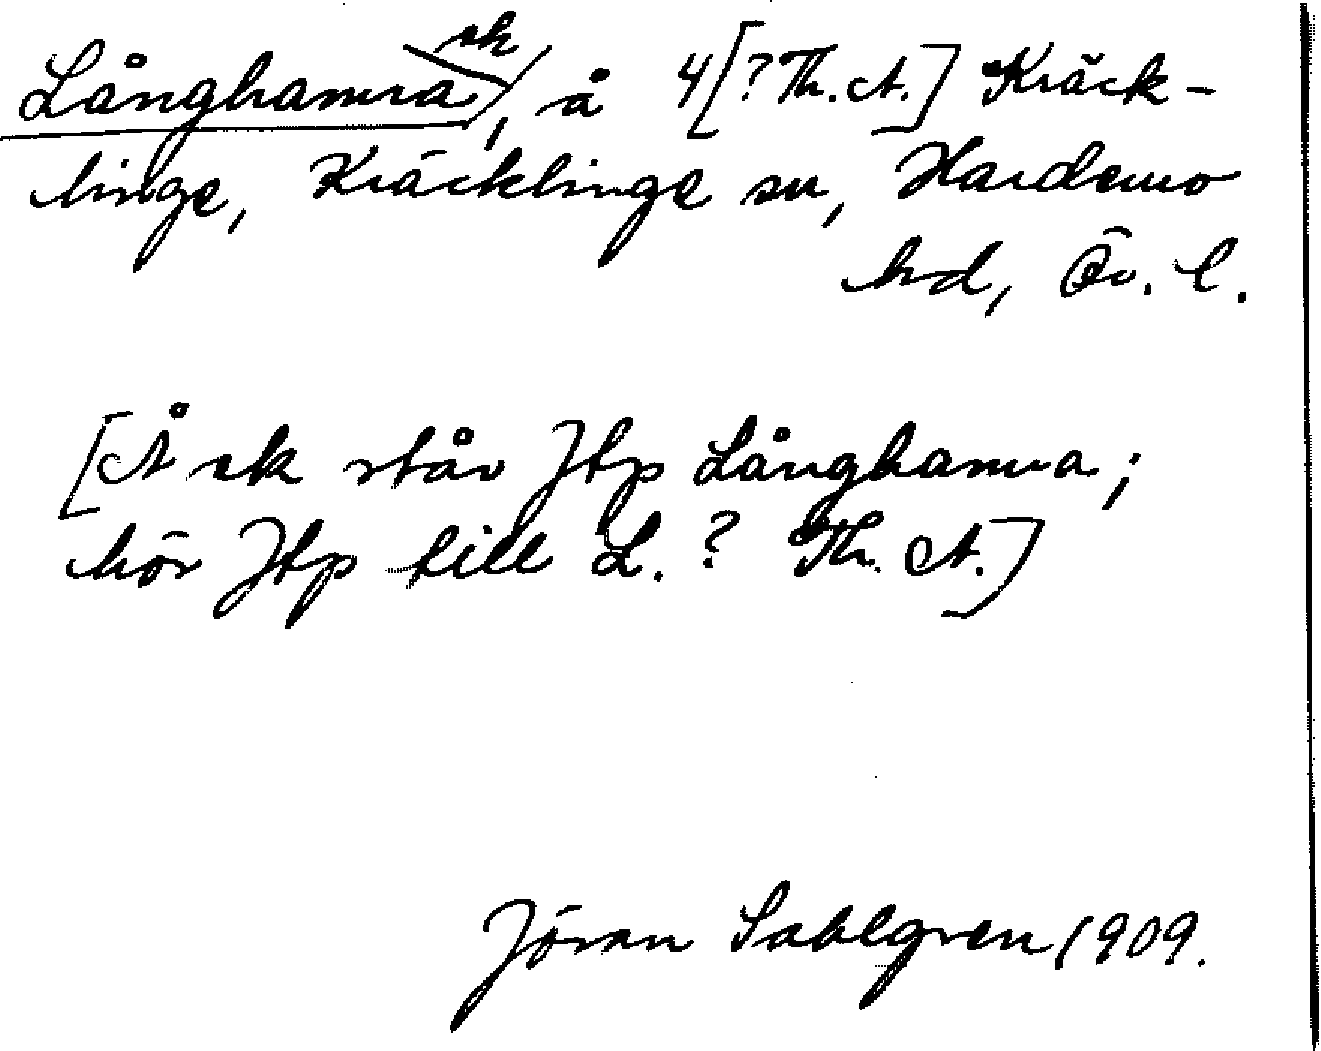 Långhamra sk, å 4 [? Th. A.] Kräck-
linge, Kräcklinge sn, Hardemo
hd, Ör. l.
[Å sk står Jtp Långhamra;
hör Jtp till L. ? Th. A.]
Jöran Sahlgren 1909.